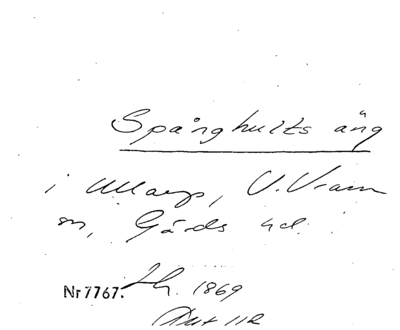 Spånghults äng
i Ullarp, V. Vram
sn, Gärds hd.
Nr 7767. 1869